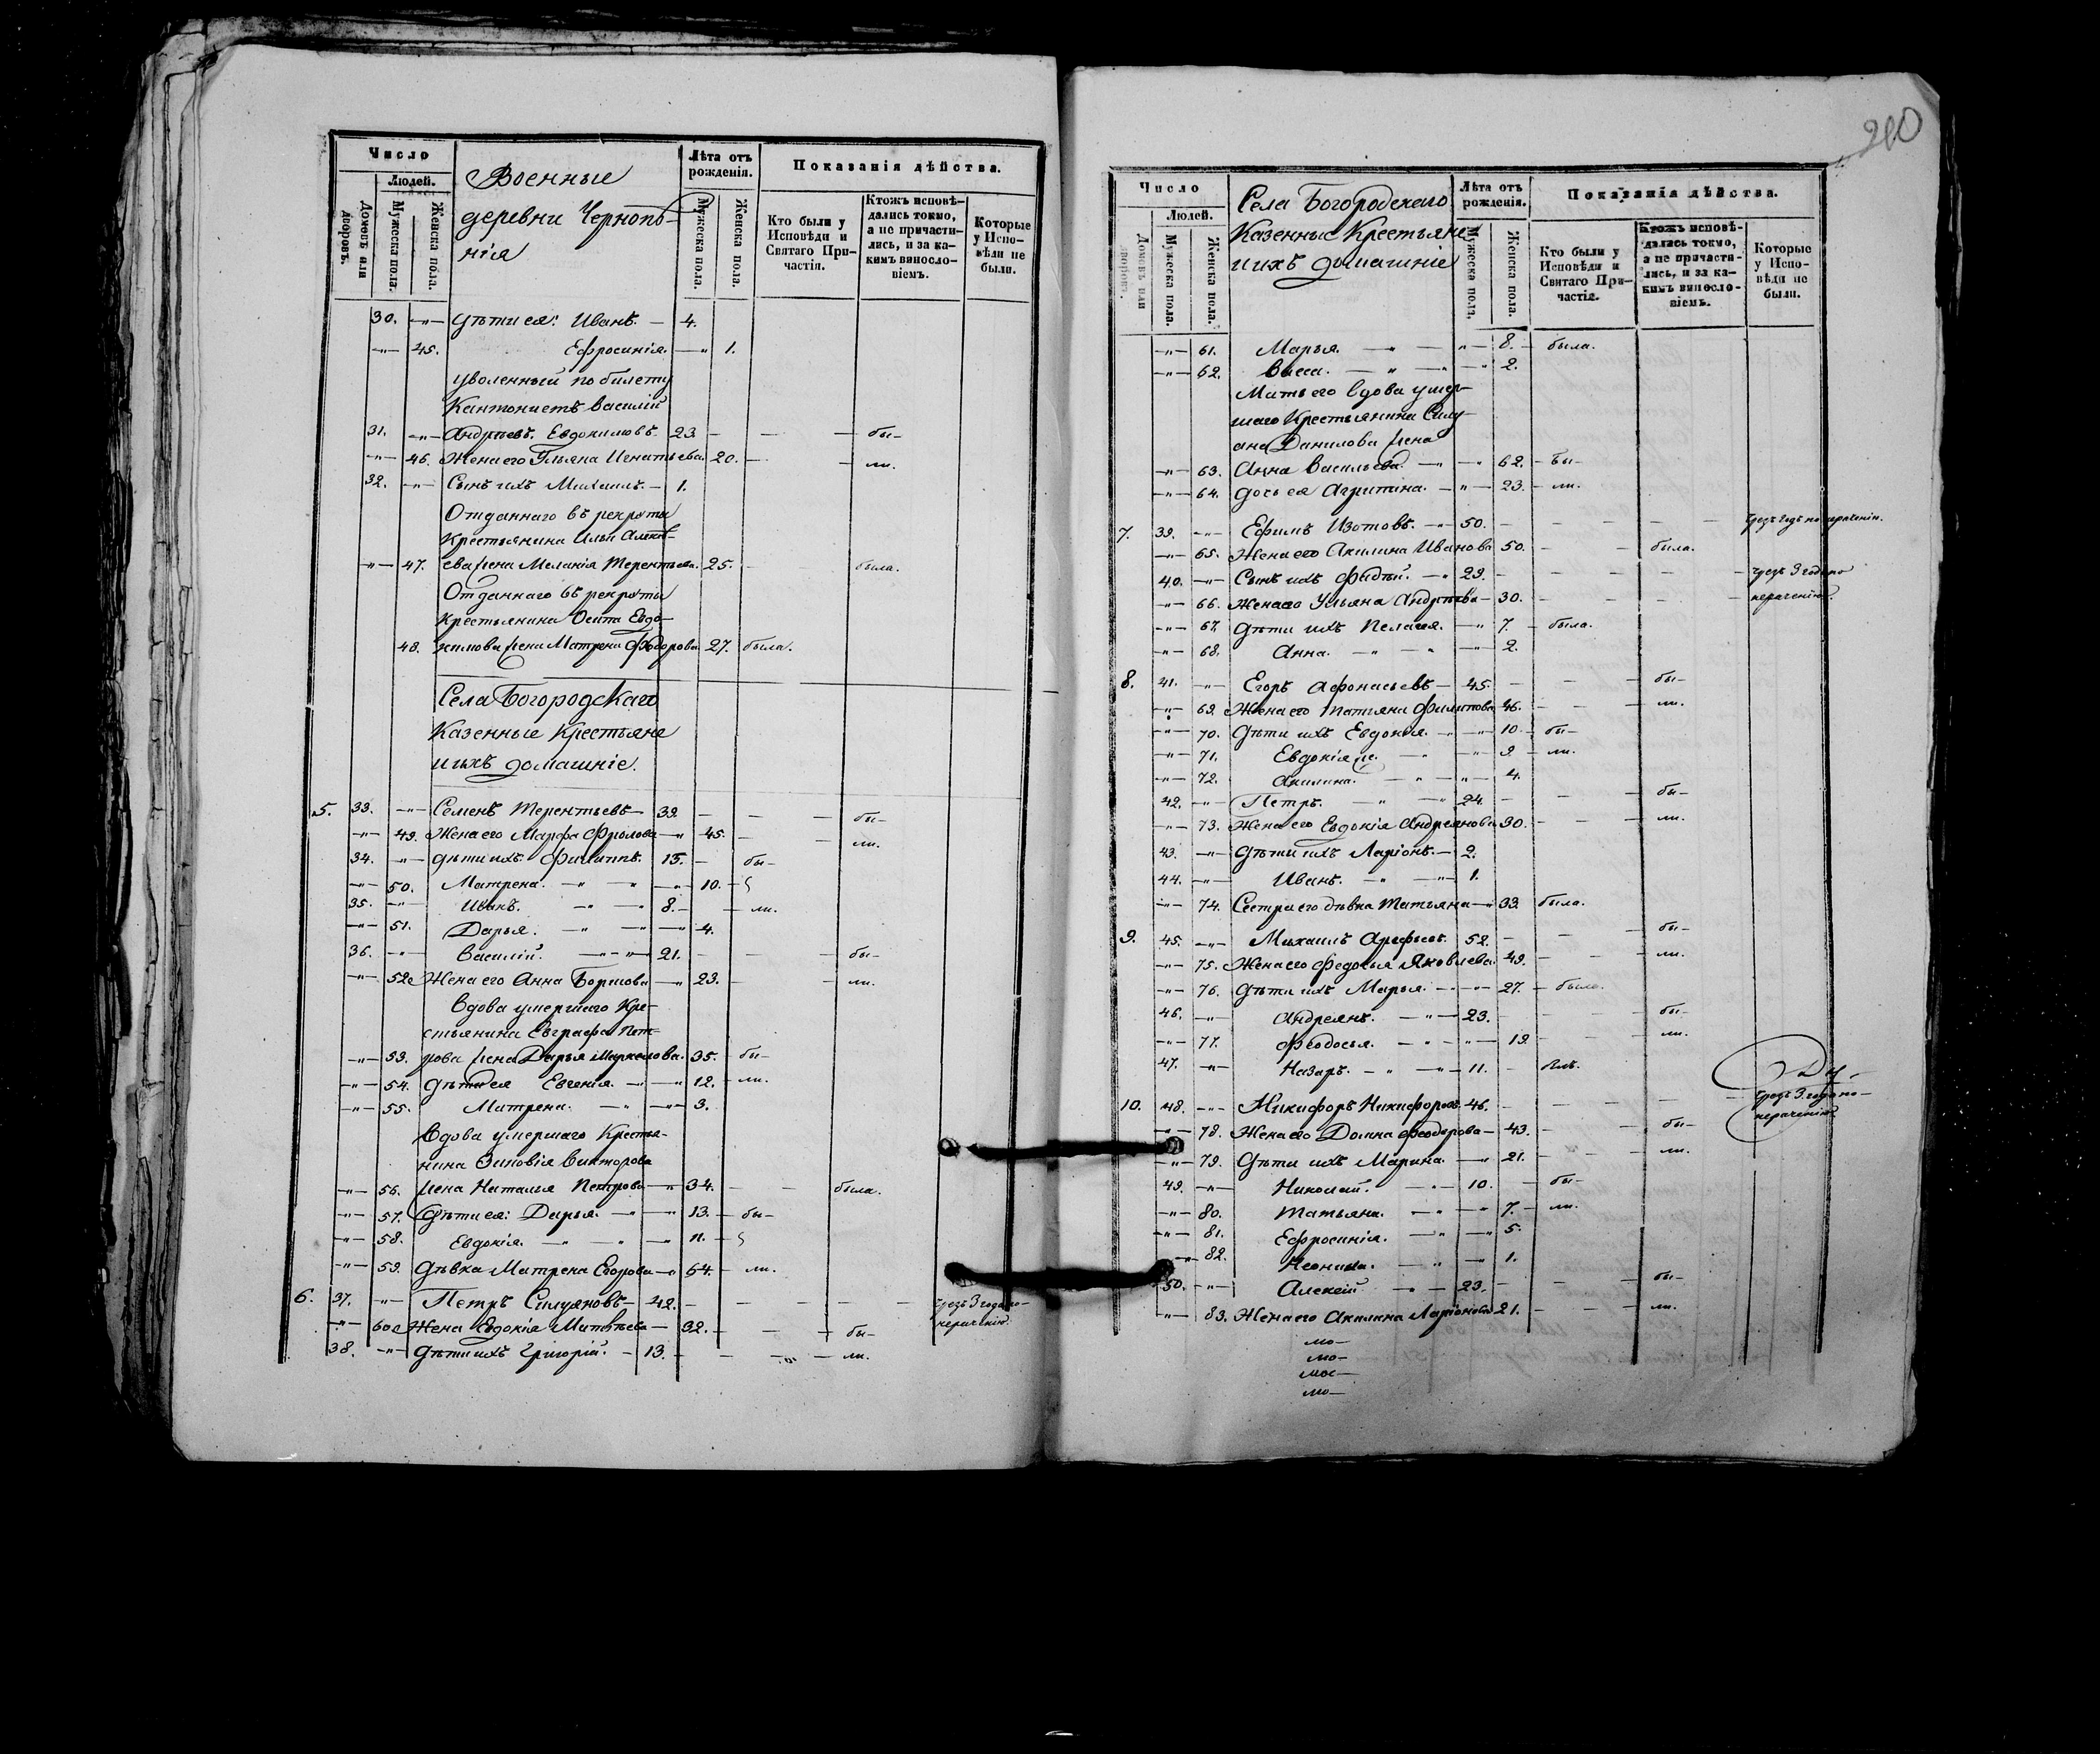 Число
Людей.
Домовъ или дворовъ.
Мужеска пола.
Женска пола.
Военные
деревни Чернопѣ-
нія
Лѣта отъ рожденія.
Мужеска пола.
Женска пола.
Показанія дѣйства.
Кто были у Исповѣди и Святаго При-частія.
Ктожъ исповѣ-дались токмо, а не причасти-лись, и за ка-кимъ винословіемъ.
Которые у Испо-вѣди не были.
30. —"— дѣти ея: Иванъ. — 4.
—"— 45. Ефросинія. —" 1.
уволенный по билету
Кантонистъ Василій
31. —"— Андреевъ. Евдокимовъ. 23. — — — бы-
—"— 46. Жена его Ульяна Игнатьева. 20. — — ли.
32. —"— Сынъ ихъ Михаилъ. — 1.
Отданнаго въ рекруты
Крестьянина Ильи Алексѣ-
—"— 47. ева жена Меланія Терентьева. 25. — была.
Отданнаго въ рекруты
Крестьянина Осипа Евдо-
48. кимова жена Матрена Фодорова 27. была.
Села Богородскаго
Казенные Крестьяне
и ихъ домашніе.
5. 33. —"— Семенъ Терентьевъ — 39. — — — бы-
—"— 49. Жена его Марфа Фролова —" 45. — — ли.
34. —"— дѣти ихъ: Филиппъ. 15. — бы-
—"— 50. Матрена. —" —" —"— 10. —
35. —"— Иванъ. —" —" 8. — — ли.
—"— 51. Дарья. —" —" —" 4.
36. —"— Василій. —"—"— 21. — — — бы-
—"— 52 Жена его Анна Борисова —" 23. — — ли.
Вдова умершаго Кре-
стьянина Евграфа Пет-
—"— 53. рова жена Дарья Маркелова. 35. — бы-
—"— 54. Дѣти ея Евгенія. —" —" 12. — ли.
—"— 55. Матрена. —" —" 3.
Вдова умершаго Кресть-
нина Зиновія Викторова
—"— 56. жена Наталья Петрова —" 34. — — была.
—"— 57. Дѣти ея: Дарья. —" —" 13. — бы-
—"— 58. Евдокія. —" —" —" 11. —
—"— 59. Дѣвка Матрена Егорова —" 64. — ли.
6. 37. —"— Петръ Силуяновъ — 42. — — — — — чрезъ 3 года по-
нераченію.
—"— 60 Жена Евдокія Матвѣева — 32. — — — бы-
38. —"— Дѣти ихъ Григорій. — 13. — — — — ли.
210
Число
Людей.
Домовъ или дворовъ.
Мужеска пола.
Женска пола.
Села Богородскаго
Казенные Крестьяне
и ихъ домашніе
Лѣта отъ рожденія.
Мужеска пола.
Женска пола.
Показанія дѣйства.
Кто были у Исповѣди и Святаго При-частія.
Ктожъ исповѣ-дались токмо, а не причасти-лись, и за ка-кимъ винословіемъ.
Которые у Испо-вѣди не были.
—"— 61. Марья. —" — "— 8. — была.
—"— 62. Васса. —" —" —" 2.
Мать его вдова умер-
шаго Крестьянина Силу-
ана Данилова жена
—"— 63. Анна Васильева. —" —" 62. — бы-
—"— 64. дочь ея Агрипина. — "— 23. — ли.
7. 39. —"— Ефимъ Изотовъ. —" 50. — — — — — чрезъ годъ по нераченію.
—"— 65. Жена его Акилина Иванова 50. — — была.
40. —"— Сынъ ихъ Фадѣй. —" 29. — — — — — чрезъ 3 года по
—"— 66. Жена его Ульяна Андреева — 30. — — — — нераченію.
—"— 67. Дѣти ихъ Пелагея. —" 7. — была.
—"— 68. Анна. —" —" —" 2.
8. 41. —"— Егоръ Афонасьевъ — 45. — — — бы-
—"— 69. Жена его Татьяна Филипова 46. — — — ли.
—"— 70. Дѣти ихъ Евдокія. —" —" 10. — бы-
—"— 71. Евдокія же. —" —" 9 — ли.
—"— 72. Акилина. —" —"— 4.
42. —"— Петръ. —" —" 24. — — — бы-
—"— 73. Жена его Евдокія Андреянова 30. — — — ли.
43. —"— Дѣти ихъ Ларіонъ. — 2.
44. —"— Иванъ. —" —"— 1.
—"— 74. Сестра его дѣвка Татьяна —" 33. была.
9. 45. —"— Михаилъ Арефьевъ. 52. — — — бы-
—"— 75. Жена его Федосья Яковлева. 49. — — — ли.
—"— 76. Дѣти ихъ Марья. —" —" 27. — была.
46. —"— Андреянъ. —"— 23. — — — бы-
—"— 77. Феодосья. —"—"— 19. — — — ли.
47. —"— Назаръ. —" —" 11. — былъ.
10. 48. —"— Никифоръ Никифоровъ. 46. — — — — — чрезъ 3 года по-
нераченію.
—"— 78. Жена его Домна Феодорова — 43. — — бы-
—"— 79. Дѣти ихъ Марина. —" 21. — — ли.
49. —"— Николай. —"— 10. — бы-
—"— 80. Татьяна. —" —" 7. — ли.
—"— 81. Ефросинія. —" —" 5.
—"— 82. Неонила. —" —" 1.
50. —"— Алексѣй —" 23. — — — бы-
—"— 83. Жена его Акилина Ларіонова 21. — — — ли.
мо—
мо—
мое—
мо—